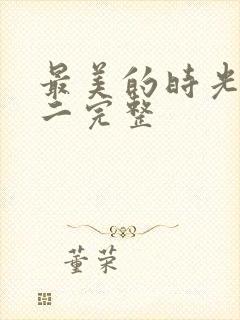 最美的时光
二完整
董荣